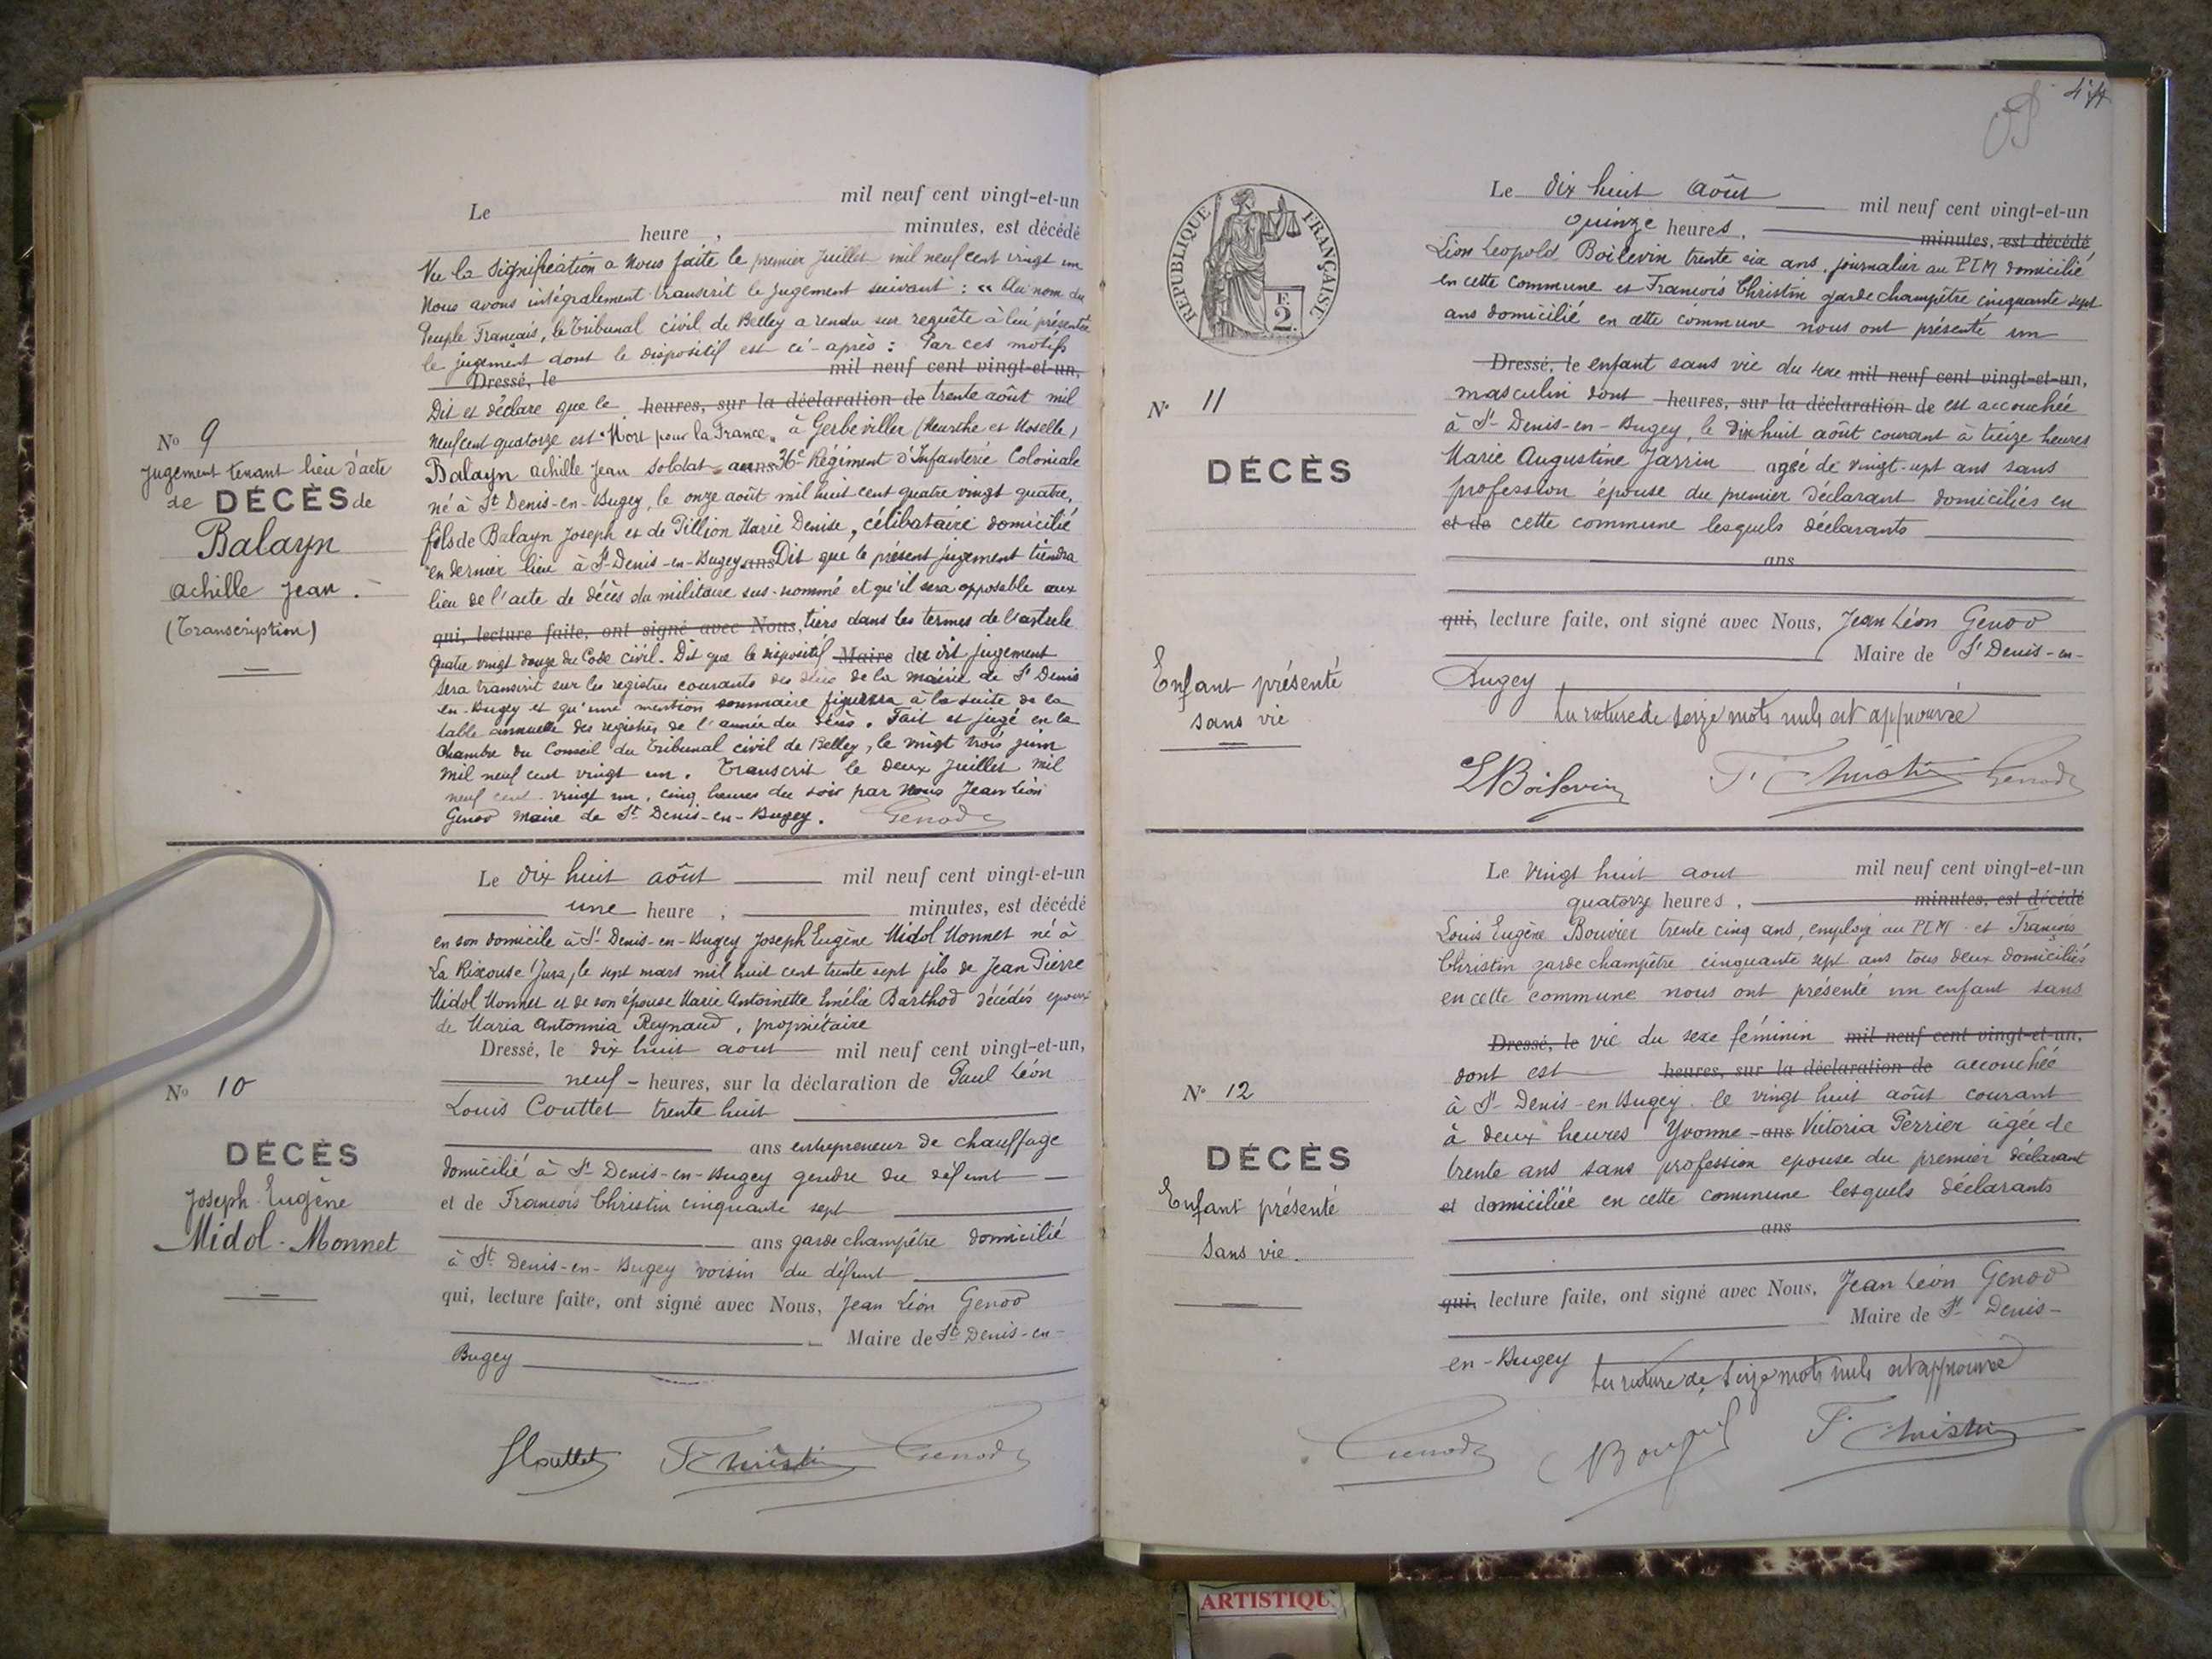 Le mil neuf cent vingt-et-un
heure , minutes, est décédé
Vu la signification à Nous faite le premier Juillet mil neuf cent vingt un
Nous avons intégralement transcrit le jugement suivant : « Au nom du
Peuple Français, le Tribunal civil de Belley a rendu sur requête à lui présentée
le jugement dont le dispositif est ci-après : Par ces motifs
Dressé, le mil neuf cent vingt-et-un,
Dit et déclare que le heures, sur la déclaration de trente août mil
neuf cent quatorze est "Mort pour la France" à Gerbeviller (Meurthe et Moselle)
N° 9
Jugement tenant lieu d'acte
de DÉCÈS de
Balayn
Achille Jean.
(Transcription)
Balayn Achille Jean soldat au ans 36e Régiment d'Infanterie Coloniale
né à St Denis-en-Bugey, le onze août mil huit cent quatre vingt quatre,
fils de Balayn Joseph et de Pillion Marie Denise, célibataire domicilié
en dernier lieu à St Denis-en-Bugey ans Dit que le présent jugement tiendra
lieu de l'acte de décès du militaire sus-nommé et qu'il sera opposable aux
qui, lecture faite, ont signé avec Nous, tiers dans les termes de l'article
quatre vingt douze du Code civil. Dit que le dispositif Maire du dit jugement
sera transcrit sur les registres courants des décès de la mairie de St Denis
en-Bugey et qu'une mention sommaire figurera à la suite de la
table annuelle des registres de l'année du décès. Fait et jugé en la
Chambre du Conseil du Tribunal civil de Belley, le vingt trois juin
mil neuf cent vingt un. Transcrit le deux Juillet mil
neuf cent vingt un, cinq heures du soir par Nous Jean Léon
Genod Maire de St Denis-en-Bugey. Genod
Le dix huit août mil neuf cent vingt-et-un
une heure , minutes, est décédé
en son domicile à St Denis-en-Bugey Joseph Eugène Midol Monnet né à
La Rixouse (Jura) le sept mars mil huit cent trente sept fils de Jean Pierre
Midol Monnet et de son épouse Marie Antoinette Emélie Barthod décédés époux
de Maria Antonnia Reynaud, propriétaire
Dressé, le dix huit aout mil neuf cent vingt-et-un,
neuf heures, sur la déclaration de Paul Léon
Louis Couttet trente huit
N° 10
DÉCÈS
Joseph Eugène
Midol-Monnet
ans entrepreneur de chauffage
domicilié à St Denis-en-Bugey gendre du défunt
et de François Christin cinquante sept
ans garde champêtre domicilié
à St Denis-en-Bugey voisin du défunt
qui, lecture faite, ont signé avec Nous, Jean Léon Genod
Maire de St Denis-en-
Bugey
Couttet F Christin Genod
47
Le dix huit août mil neuf cent vingt-et-un
quinze heures, minutes, est décédé
RÉPUBLIQUE FRANÇAISE
F.
2.
Léon Leopold Boilevin trente six ans, journalier au PLM domicilié
en cette commune et François Christin garde champêtre cinquante sept
ans domicilié en cette commune nous ont présenté un
Dressé, le enfant sans vie du sexe mil neuf cent vingt-et-un,
masculin dont heures, sur la déclaration de est accouchée
à St Denis-en-Bugey, le dix huit août courant à treize heures
N° 11
DÉCÈS
Enfant présenté
sans vie
Marie Augustine Jarrin agée de vingt-sept ans sans
profession épouse du premier déclarant domiciliés en
et de cette commune lesquels déclarants
ans
qui, lecture faite, ont signé avec Nous, Jean Léon Genod
Maire de St Denis-en-
Bugey
La rature de seize mots nuls est approuvée
L Boilevin F Christin Genod
Le vingt huit aout mil neuf cent vingt-et-un
quatorze heures, minutes, est décédé
Louis Eugène Bouvier trente cinq ans, employé au PLM et François
Christin garde champêtre cinquante sept ans tous deux domiciliés
en cette commune nous ont présenté un enfant sans
Dressé, le vie du sexe féminin mil neuf cent vingt-et-un,
dont est heures, sur la déclaration de accouchée
à St Denis-en Bugey le vingt huit août courant
N° 12
DÉCÈS
Enfant présenté
Sans vie.
à deux heures Yvonne ans Victoria Perrier agée de
trente ans sans profession epouse du premier déclarant
et domiciliée en cette commune lesquels déclarants
ans
qui, lecture faite, ont signé avec Nous, Jean Léon Genod
Maire de St Denis-
en-Bugey
La rature de seize mots nuls est approuvée
Genod F Christin
ARTISTIQU